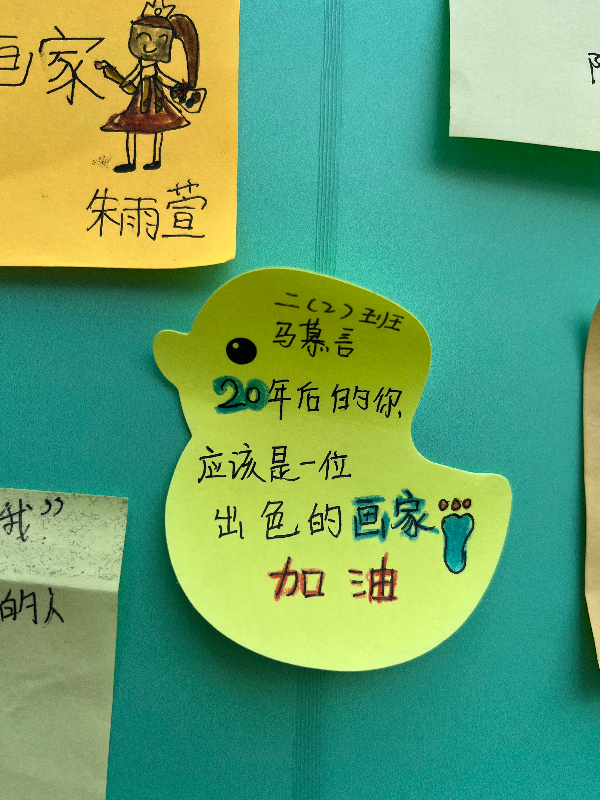 画家
朱雨萱
二(2)班
马慕言
20年后的你
应该是一位
出色的画家
加油
我”
的人